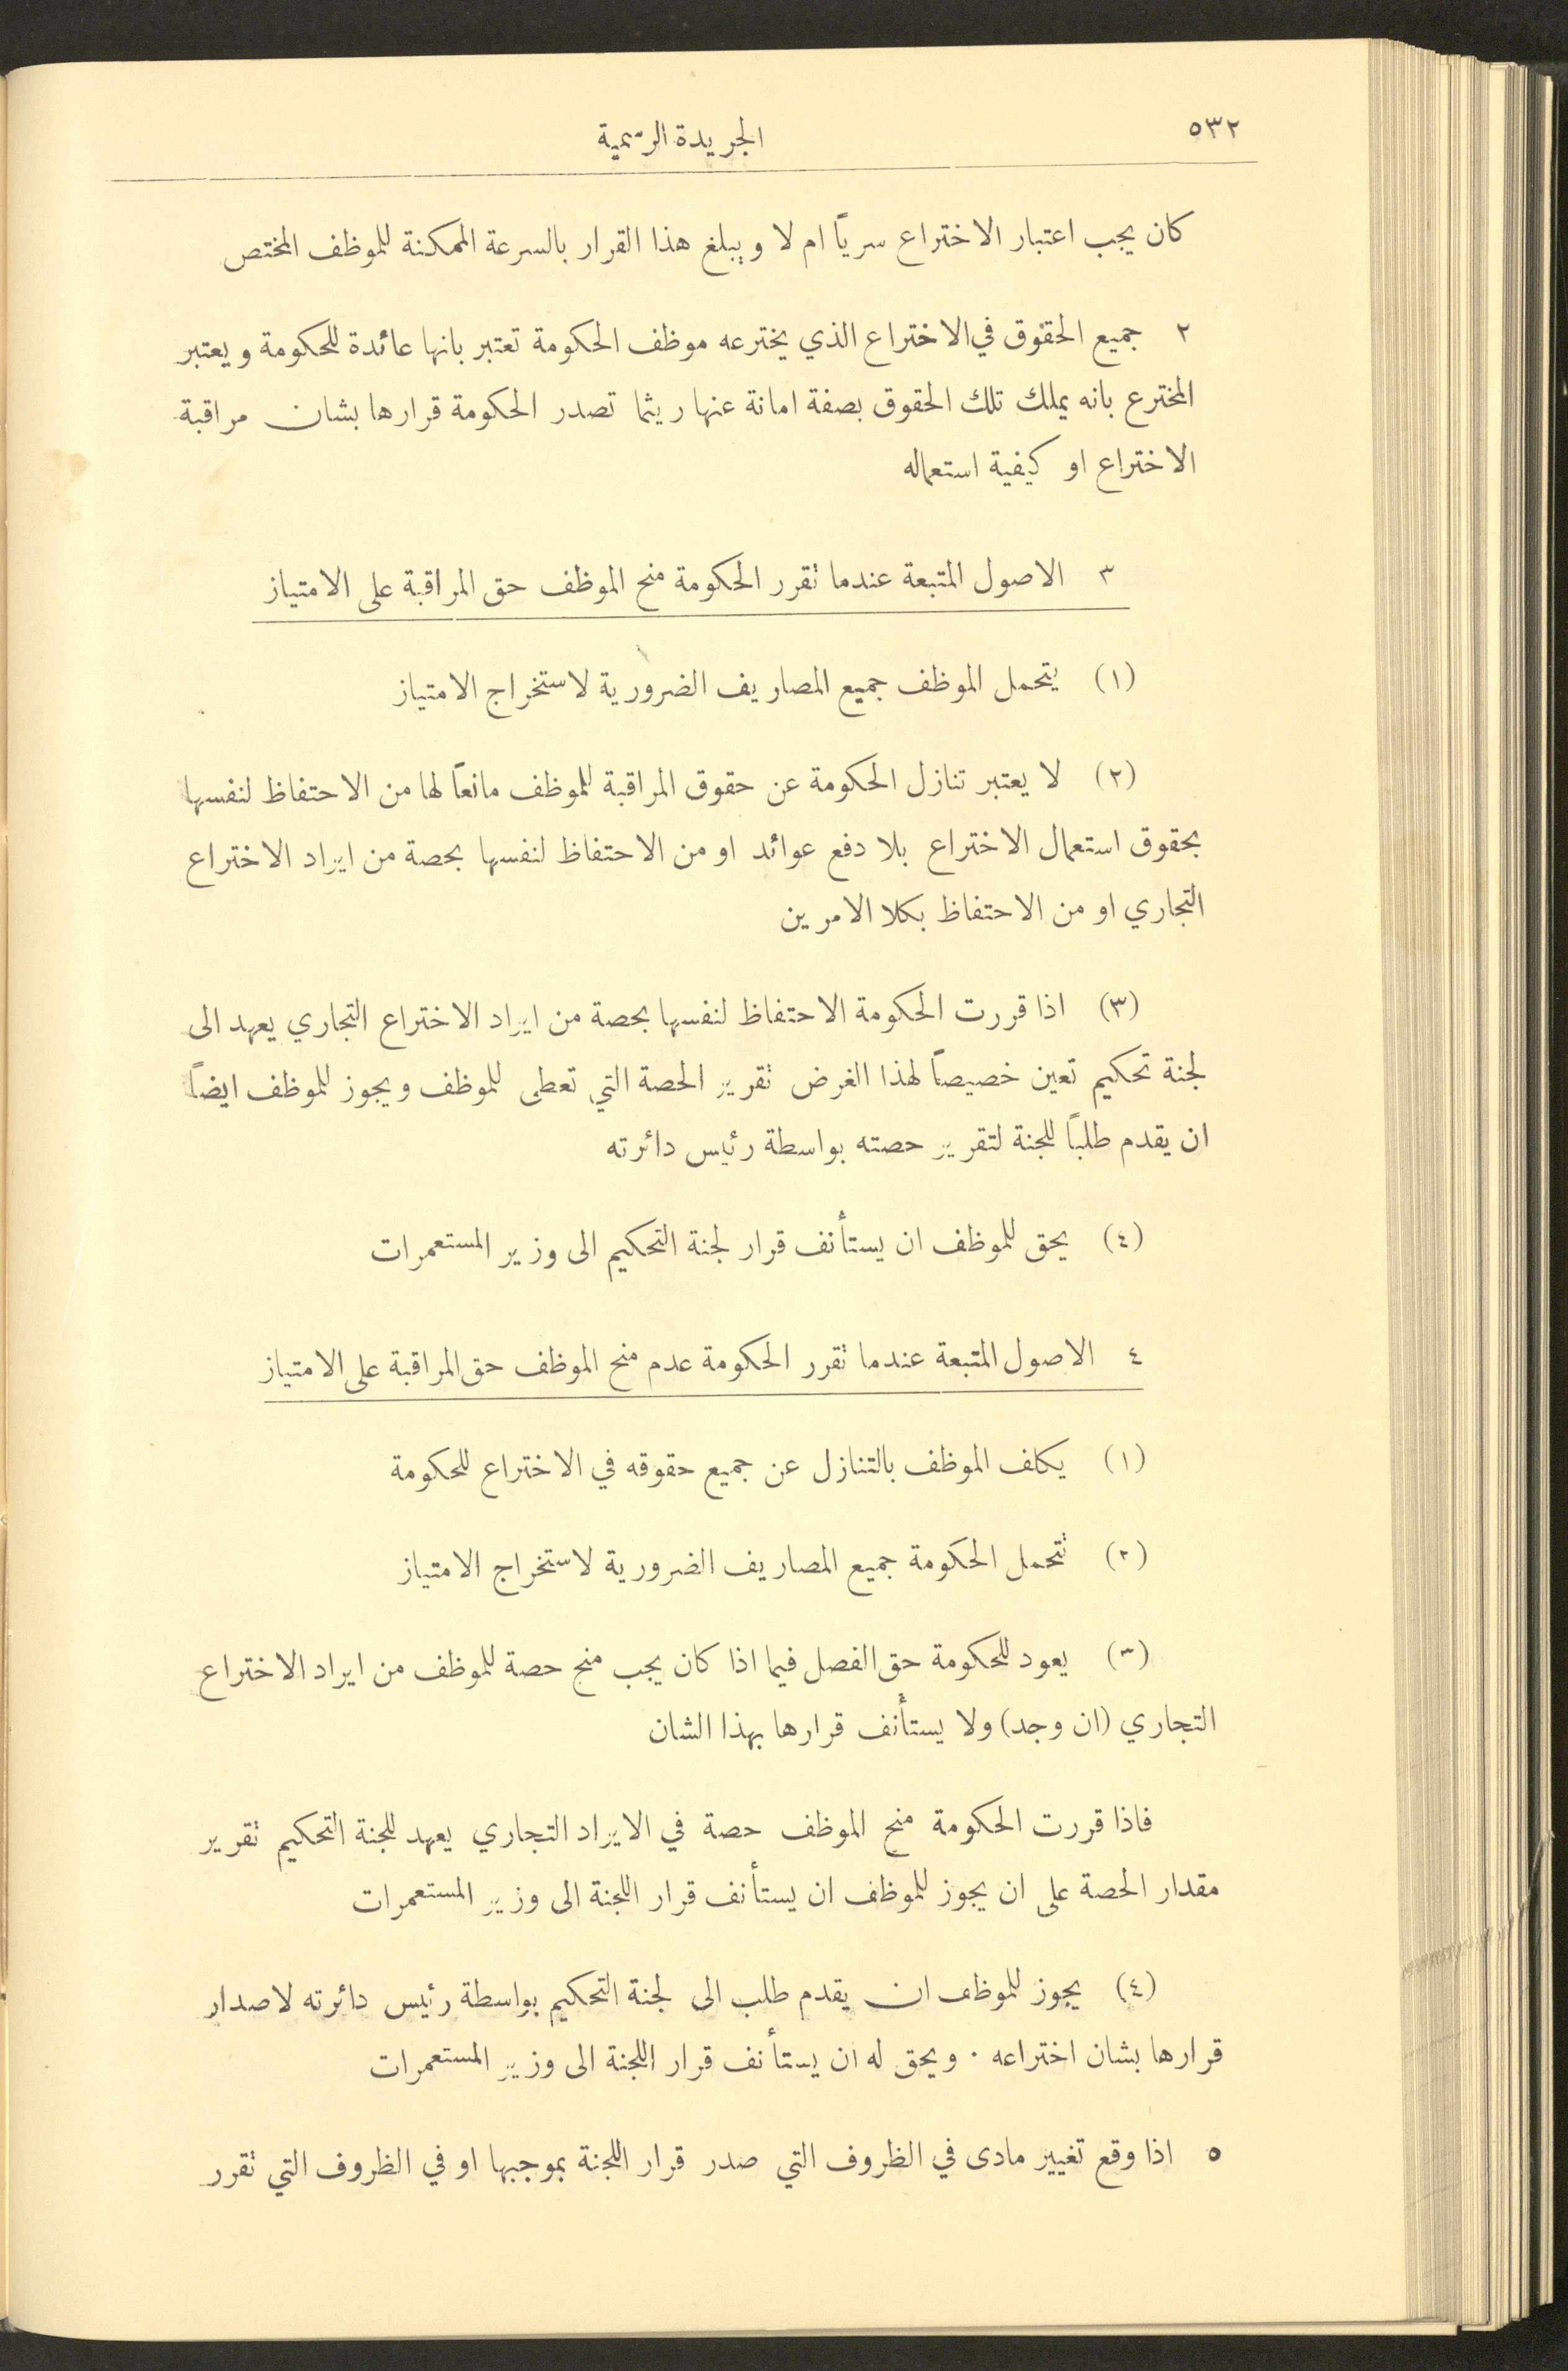 ٥٣٢
الجريدة الرسمية
كان يجب اعتبار الاختراع سرياً ام لا ويبلغ هذا القرار بالسرعة الممكنة للموظف المختص
٢ جميع الحقوق في الاختراع الذي يخترعه موظف الحكومة تعتبر بانها عائدة للحكومة ويعتبر
المخترع بانه يملك تلك الحقوق بصفة امانة عنها ريثما تصدر الحكومة قرارها بشان مراقبة
الاختراع او كيفية استعماله
٣ الاصول المتبعة عندما تقرر الحكومة منح الموظف حق المراقبة على الامتياز
(١) يتحمل الموظف جميع المصاريف الضرورية لاستخراج الامتياز
(٢) لا يعتبر تنازل الحكومة عن حقوق المراقبة للموظف مانعاً لها من الاحتفاظ لنفسها
بحقوق استعمال الاختراع بلا دفع عوائد او من الاحتفاظ لنفسها بحصة من ايراد الاختراع
التجاري او من الاحتفاظ بكلا الامرين
(٣) اذا قررت الحكومة الاحتفاظ لنفسها بحصة من ايراد الاختراع التجاري يعهد الى
لجنة تحكيم تعين خصيصاً لهذا الغرض تقرير الحصة التي تعطى للموظف ويجوز للموظف ايضاً
ان يقدم طلباً للجنة لتقرير حصته بواسطة رئيس دائرته
(٤) يحق للموظف ان يستأنف قرار لجنة التحكيم الى وزير المستعمرات
٤ الاصول المتبعة عندما تقرر الحكومة عدم منح الموظف حق المراقبة على الامتياز
(١) يكلف الموظف بالتنازل عن جميع حقوقه في الاختراع للحكومة
(٢) تتحمل الحكومة جميع المصاريف الضرورية لاستخراج الامتياز
(٣) يعود للحكومة حق الفصل فيما اذا كان يجب منح حصة للموظف من ايراد الاختراع
التجاري (ان وجد) ولا يستأنف قرارها بهذا الشان
فاذا قررت الحكومة منح الموظف حصة في الايراد التجاري يعهد للجنة التحكيم تقرير
مقدار الحصة على ان يجوز للموظف ان يستأنف قرار اللجنة الى وزير المستعمرات
(٤) يجوز للموظف ان يقدم طلب الى لجنة التحكيم بواسطة رئيس دائرته لاصدار
قرارها بشان اختراعه ٠ ويحق له ان يستأنف قرار اللجنة الى وزير المستعمرات
٥ اذا وقع تغيير مادى في الظروف التي صدر قرار اللجنة بموجبها او في الظروف التي تقرر